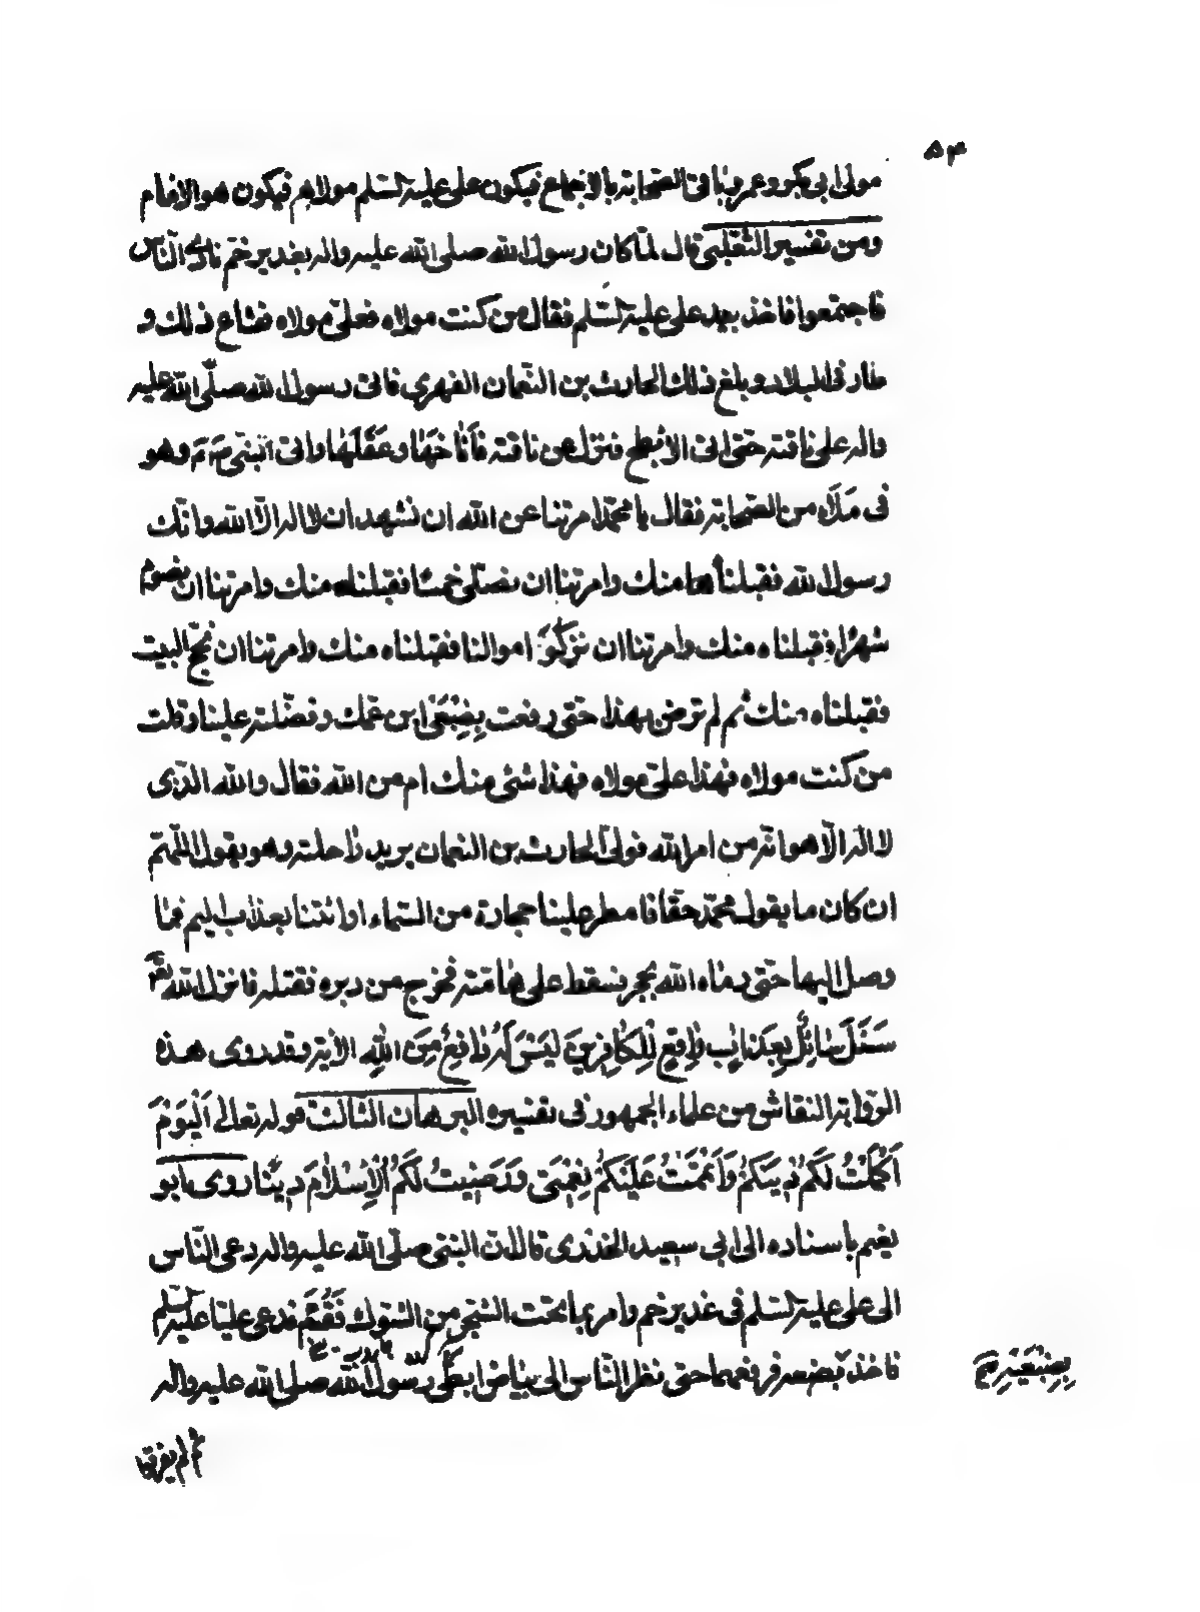 ٥٣
مولى ابي بكر و عمر و باقى الصحابة بالاجماع فيكون على عليه السلم مولاهم فيكون هو الامام
ومن تفسير الثعلبى قال لمّا كان رسول الله صلى الله عليه واله بغدير خمّ نادى النّاس
فاجتمعوا فاخذ بيد على عليه السّلم فقال من كنت مولاه فعلىّ مولاه فشاع ذلك و
طار فى البلاد و بلغ ذلك الحارث بن النعمان الفهرى فاتى رسول الله صلّى الله عليه
واله على ناقته حتى اتى الابطح فنزل عن ناقته فَاَنٰاخَهٰا و عَقَلَهٰا و اتى النبّى وهو
فى مَلَاء من الصّحابة فقال يا محمّد امرتنا عن الله ان نشهد ان لا اله الّا الله وانّك
رسول الله فقبلناها منك وامرتنا ان نصلّى خمسًا فقبلناه منك وامرتنا ان نصوم
شهرًا فقبلناه منك وامرتنا ان نزكّوَ اموالنا فقبلناه منك وامرتنا ان نحجّ البيت
فقبلناه منك ثم لم ترض بهذا حتى رفعت بِضِبْعَىْ ابن عمك وفضّلته علينا وقلت
من كنت مولاه فهذا علىّ مولاه فهذا شئ منك ام من الله فقال والله الذى
لا اله الّا هو انّه من امر الله فولّى الحارث بن النعمان يريد راحلته وهو يقول اللّهمّ
ان كان ما يقول محمّد حقّا فامطر علينا حجارة من السّماء او ائتنا بعذاب اليم فما
وصل اليها حتّى رماه الله بحجر فسقط على هامته فخرج من دبره فقتله فانزل الله تعٰ
سَئَلَ سٰائِلٌ بِعَذٰابٍ وٰاقِعٍ لِلْكٰافِرينَ لَيْسَ لَهُ دٰافِعٌ مِنَ اللهِ الاية وقد روى هذه
الرّواية النقاش من علماء الجمهور فى تفسيره البرهان الثالث قوله تعالى اَلْيَوْمَ
اَكْمَلْتُ لَكُمْ دِينَكُمْ وَاَتْمَمْتُ عَلَيْكُمْ نِعْمَتى وَرَضِيتُ لَكُمُ الْاِسْلٰامَ دِينًا روى ابو
نعيم باسناده الى ابي سعيد الخدرى قال ان النبّى صلّى الله عليه واله دعى النّاس
الى على عليه السّلم فى غدير خم وامر بما تحت الشّجر من الشّوك فَقُمَّ فدعى عليّا عليه السّلم
فاخذ بضبعه فرفعهما حتى نظر النّاس الى بياض ابطى رسول الله صلى الله عليه واله
بِضِبْعَيْهِ خ
ثم لم يفرقوا